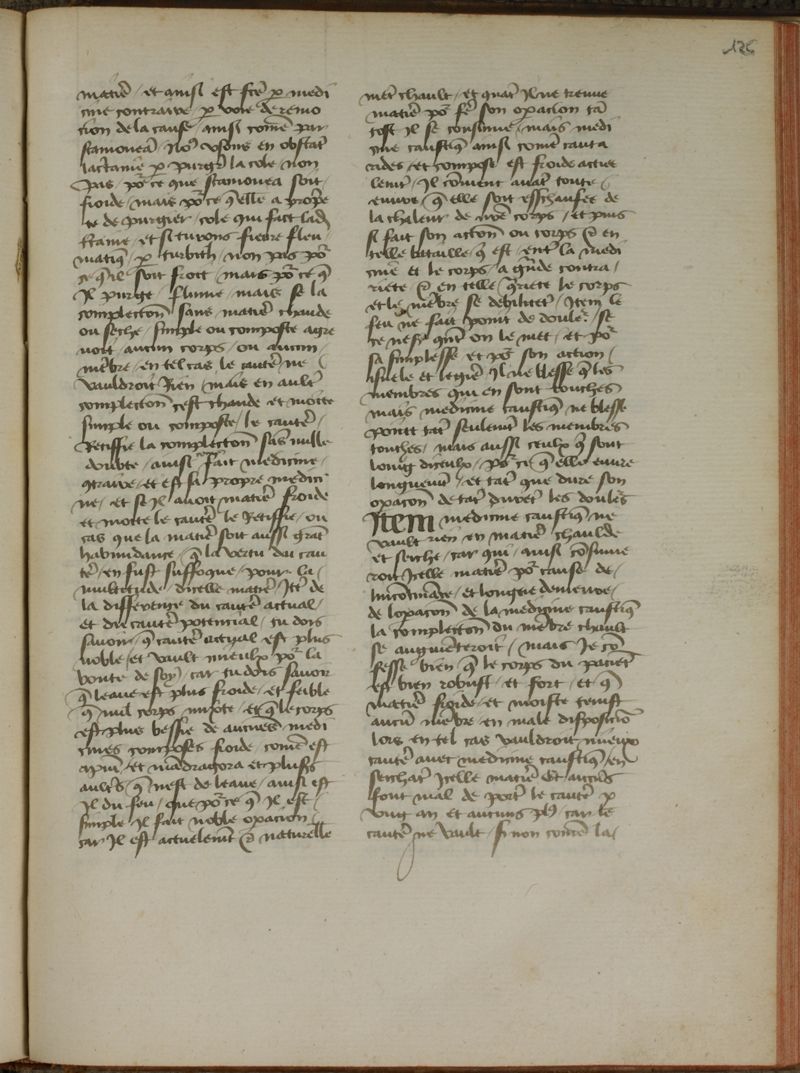 126
matiere / et ainsi est fce p medi
cine contraire p voie de remo
cion de la cause / ainsi come par
scamonea / Nos usons en obstat
lactame p purgr la cole non
pas por ce que scamonea soit
froide / mais por ce q elle a propre
te de purgier cole qui fait lad
ctame / et si curons fievre fleu
matiq p turbith non pas por
ce quil soit froit / mais por ce q
Il purge flume / mais se la
complection sans matie chaude
ou seche / simple ou composte agre
voit aucun corps / ou aucun
mebre / en tel cas le cautē ne
vauldroit Rien mais en aultē
complection cest chaude et moite
simple ou composte / le cautē
Retiffie la complection sās nulle
doubte / ainsi fait medicine
9traire / et est sa propre medici
ne / et se il avoit matiē froide
et moite le cautē le Retiffie / ou
cas que la matiē soit aussi grāt
habundance / q la vertu du cau
tē / en fust suffoque / pour la
multitude dicelle matiē / Itē de
la difference du cautē actual
et du cautē potencial / tu dois
savoir q cautē actual est plus
noble / et vault mieulx por la
bonte de soy / car tu dois savoir
q leaue est plus froide / et feible
q nul corps mixte / et q le corps
est plus bessie de aucunes medi
cines composes froide / come est
apiū / et mādragora et plusrs
aultes q nest de leaue / ainsi est
Il du feu / que por ce q il est
simple Il fait noble opacion
car Il est actuelemt & naturelle
met chault / et quat Il ne treuve
matiē por fē son opacion tā
tost Il se consume / mais medi
cine caustiq ainsi come canta
rides / et compost est froide actue
lemt / Il convient avāt toute
euvre q elle soit esschaufee de
la chaleur de nrē corps / et puis
si fait son action ou corps & en
telle bataille q est entē la medi
cine et le corps / a grāde contra
riete / & en telle q̄riete le corps
et le mēbre se debilitet / Item le
feu ne fait point de doulr / se
ce nest quāt on le met / et por
sa simplesse et por son action
isnele et legiē Il ne blesse q les
membres qui en sont touches
mais medicine caustiq ne blesse
point tāt seulemt les membres
touches / mais aussi ceulx q sont
loing diceulx / por ce q elle euvre
longuemt / et tāt que dure son
opacon de tāt duret les douls
Item medicine caustiq ne
vault rien en matiē chaulde
et seiche / car qui ainsi cōsume
roit Icelle matiē por cause de
lincōmode / et longue demeure
de lopacon de la medicine caustiq
la complection du mēbre chault
se augmēteroit / mais Je cō
fesse bien q le corps du paciēt
est bien robust / et fort / et q
matiē froide / et moiste tenist
aucū mēbre en male disposiciō
lors en tel cas vauldroit mieux
cautē avec medicine caustiq en
seichāt Icelle matiē Et aucūs
font mal de portr le cautē p
ung an et aucuns pl9 car le
cautē ne vault / si non come la